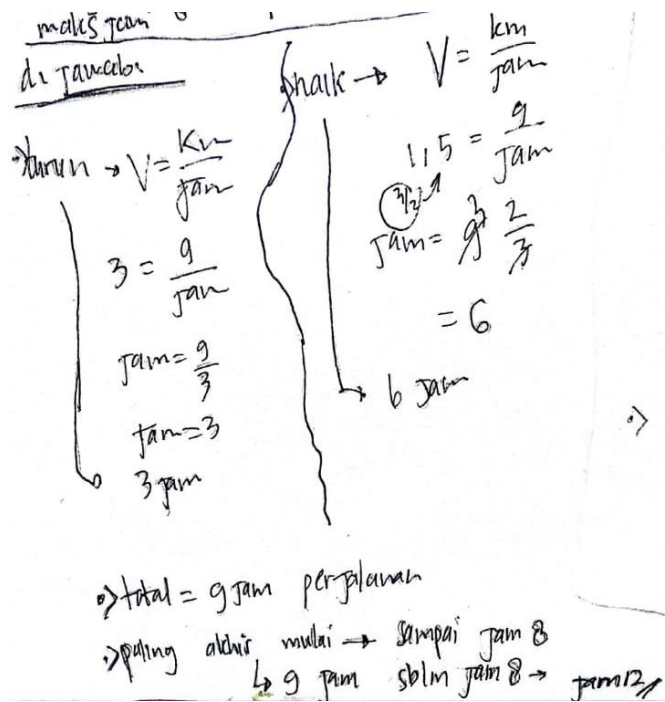 maks jam
di jawab:
•> turun → V = Km/jam
3 = 9/jam
jam = 9/3
jam = 3
3 jam
•> naik → V = km/jam
1,5 = 9/jam
3/2
jam = 9 3 2/3
= 6
6 jam
•>
•> total = 9 jam perjalanan
•> paling akhir mulai → sampai jam 8
↳ 9 jam sblm jam 8 → jam 12 //